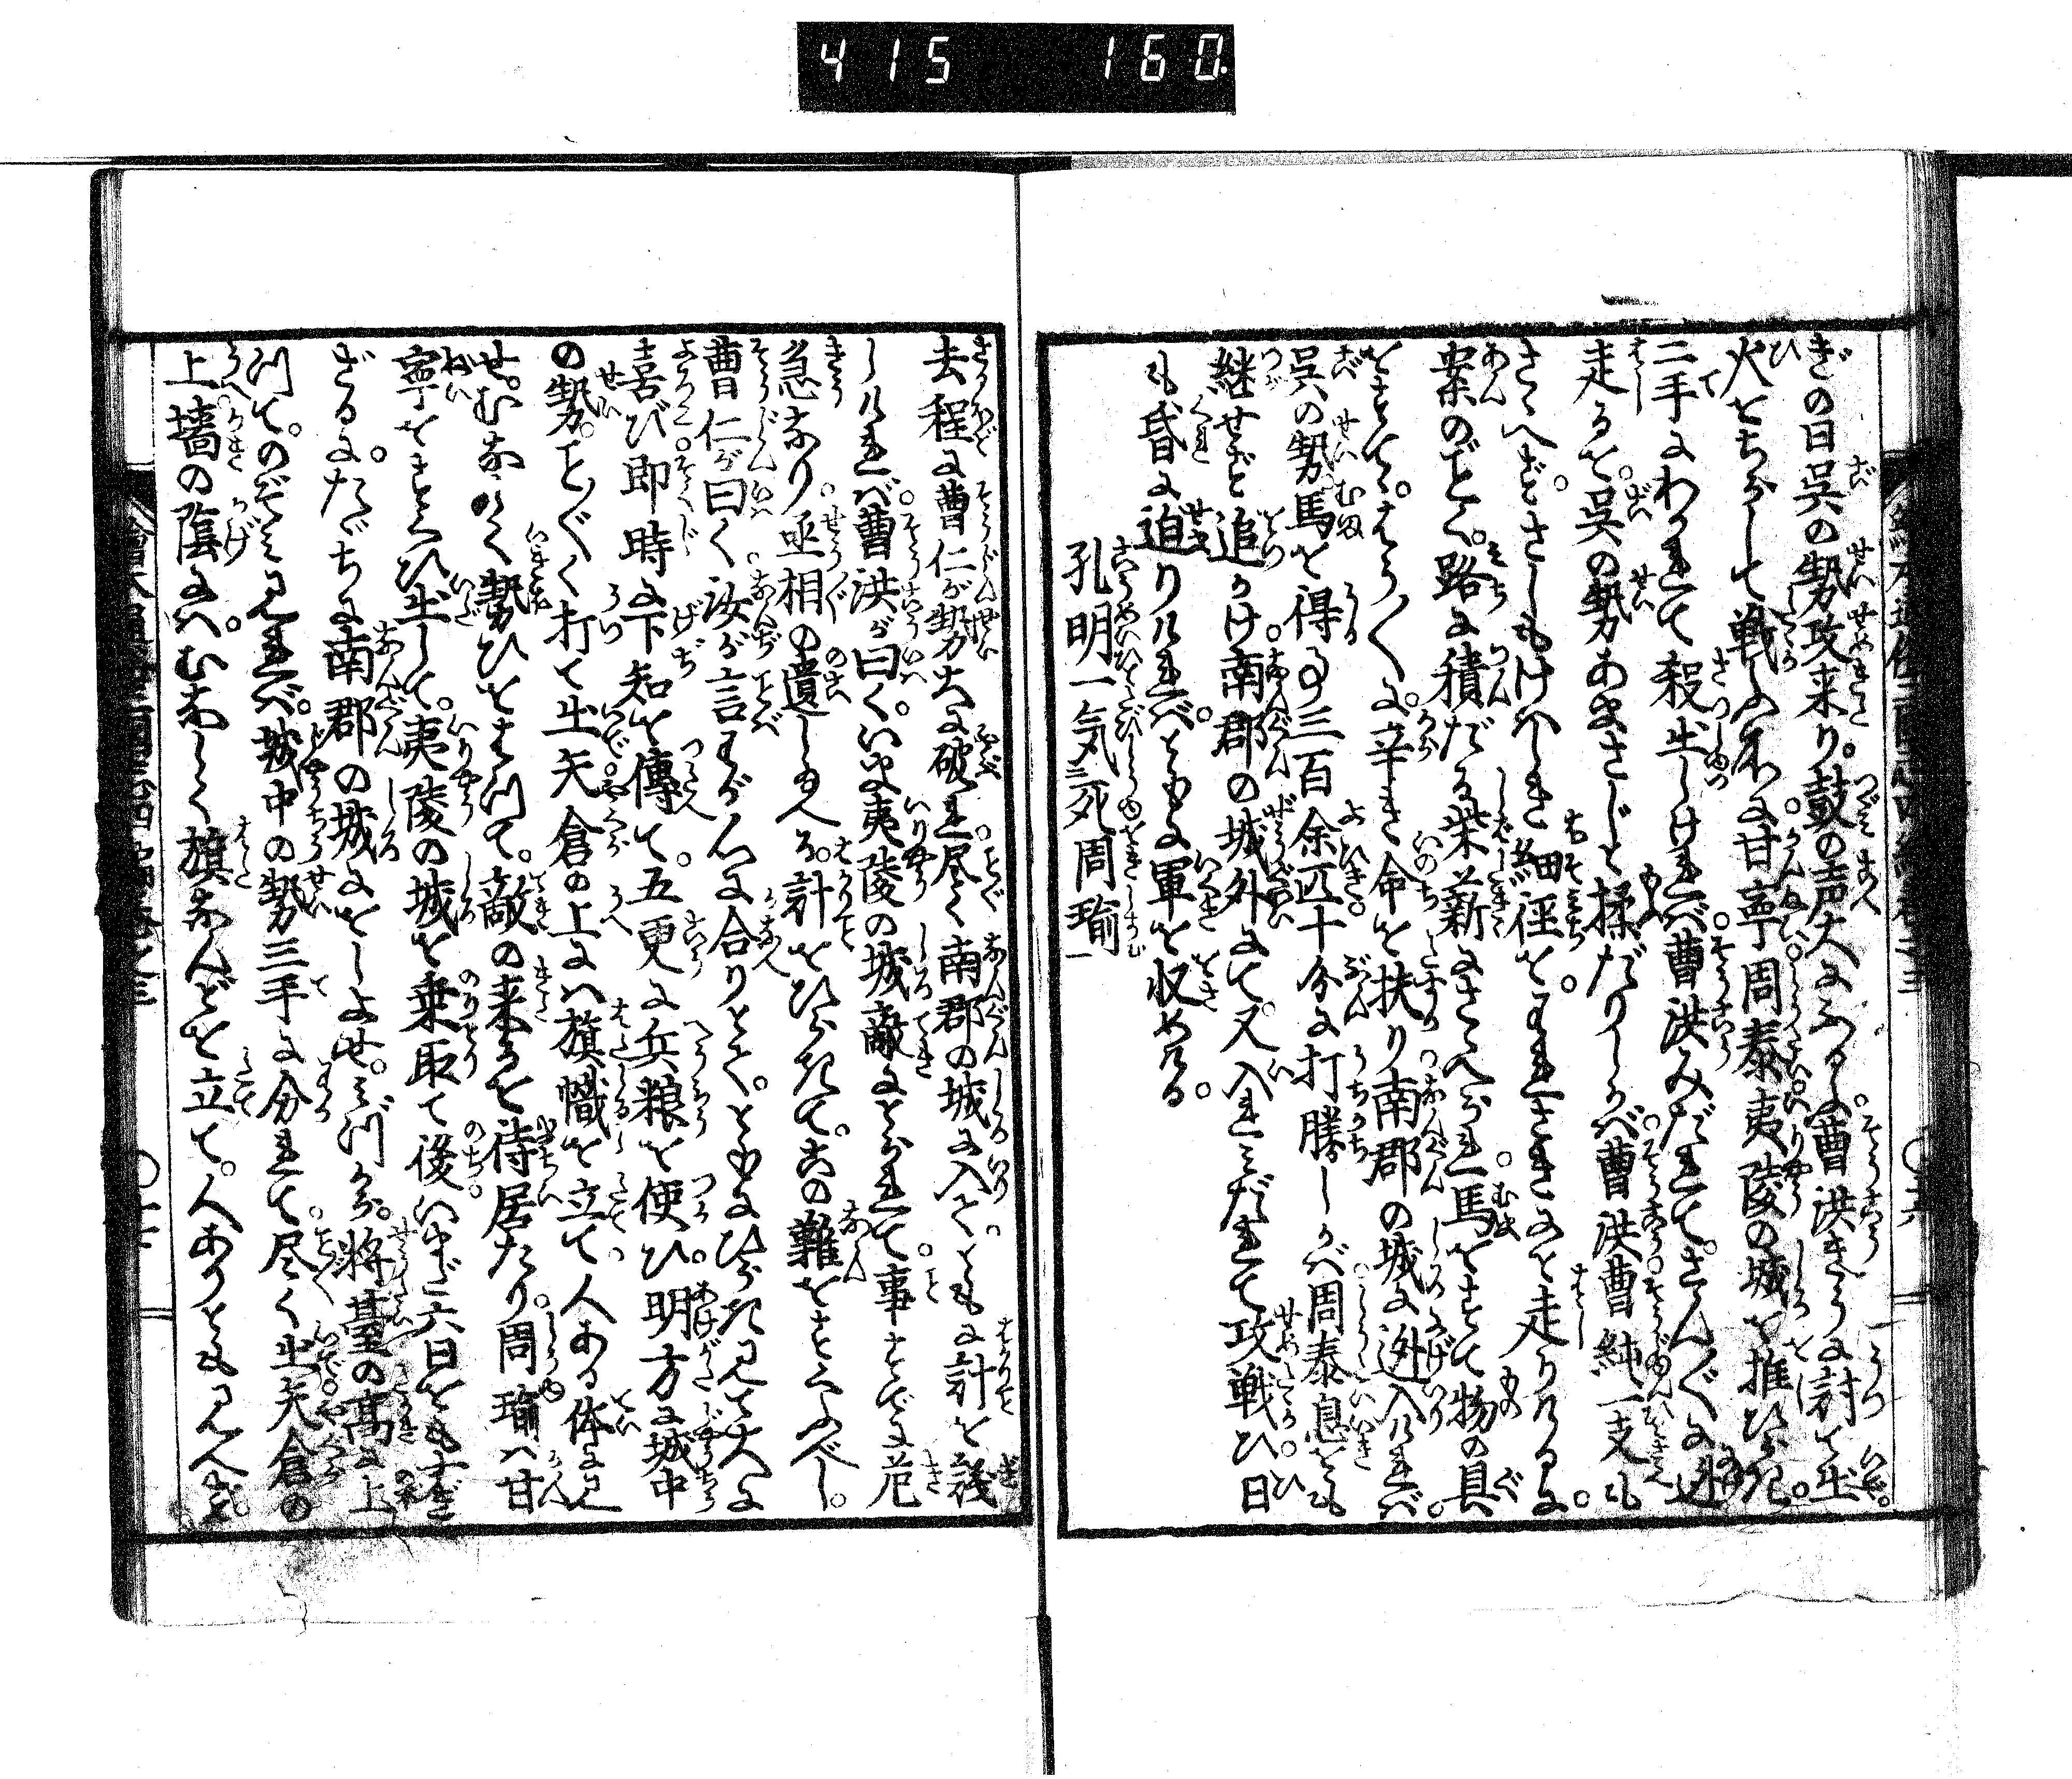 415 160
ぎの日呉の勢攻来り。鼓の声大にふるふ。曹洪きうに討て出。
火をちらして戦ふ所に。甘寧周泰夷陵の城を推ひらき。
二手にわかれて殺出しければ。曹洪みだれて。さん〴〵に迯
走るを。呉の勢あまさじと揉だりしかば。曹洪曹純一支も
さゝへず。さしもけはしき細径を。われさきにと走りけるに。
案のごとく。路に積だる柴薪にさゝへられ。馬をすて物の具
をすて。やう〳〵に。辛き命を扶り。南郡の城に迯入ければ。
呉の勢馬を得る事三百余匹。十分に打勝しかば。周泰息をも
継せず追かけ。南郡の城外にて。又入みだれて攻戦ひ。日
も昏に迫りければ。ともに軍を収めける。
孔明一気死周瑜
去程に曹仁が勢大に破れ。尽く南郡の城に入て。ともに計を議
しければ。曹洪が曰く。いま夷陵の城敵にとられて。事すでに危
急なり。丞相の遺し給へる。計をひらきて。この難をすくふべし。
曹仁が曰く。汝が言わが心に合りとて。ともにひらき見て大に
喜び。即時に下知を傳て。五更に兵粮を使ひ。明方に城中
の勢。こと〴〵く打て出。矢倉の上には旗幟を立て。人ある体に見
せ。むなしく勢ひをはつて。敵の来るを待居たり。周瑜は甘
寧をすくひ出して。夷陵の城を乗取て後。いまだ六日をもすぎ
ざるに。たゞちに南郡の城にをしよせ。みづから。将臺の高に上
つて。のぞみ見れば。城中の勢三手に分れて尽く出。矢倉の
上墻の陰には。むなしく旗なんどを立て。人ありとも見えず。